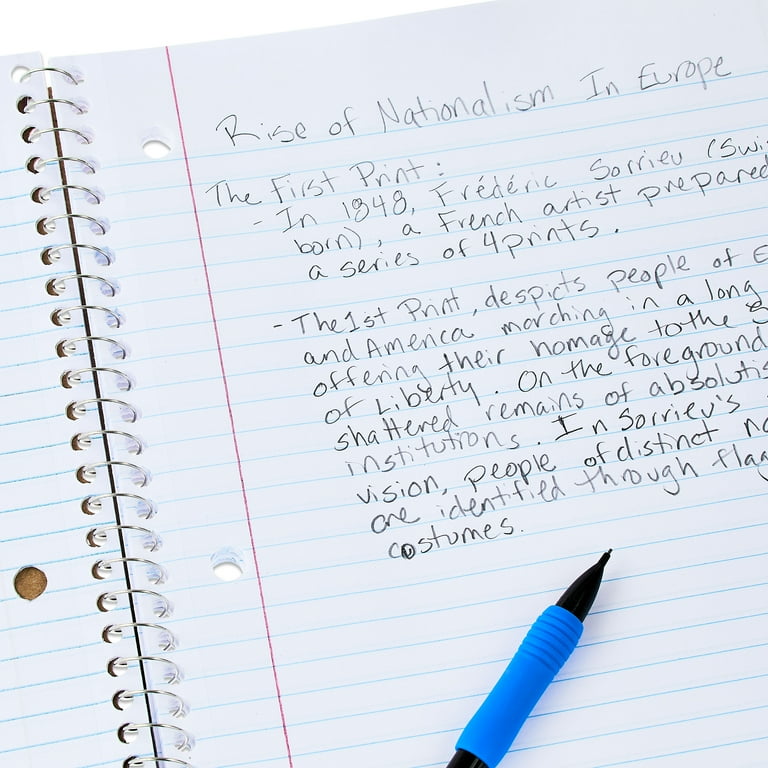 Rise of Nationalism In Europe
The First Print:
- In 1848, Frédéric Sorrieu (Swi
born), a French artist prepared
a series of 4 prints.
- The 1st Print, despicts people of E
and America marching in a long
offering their homage to the
of Liberty. On the foreground
shattered remains of absolutis
institutions. In Sorrieu's
vision, people of distinct na
are identified through flag
costumes.